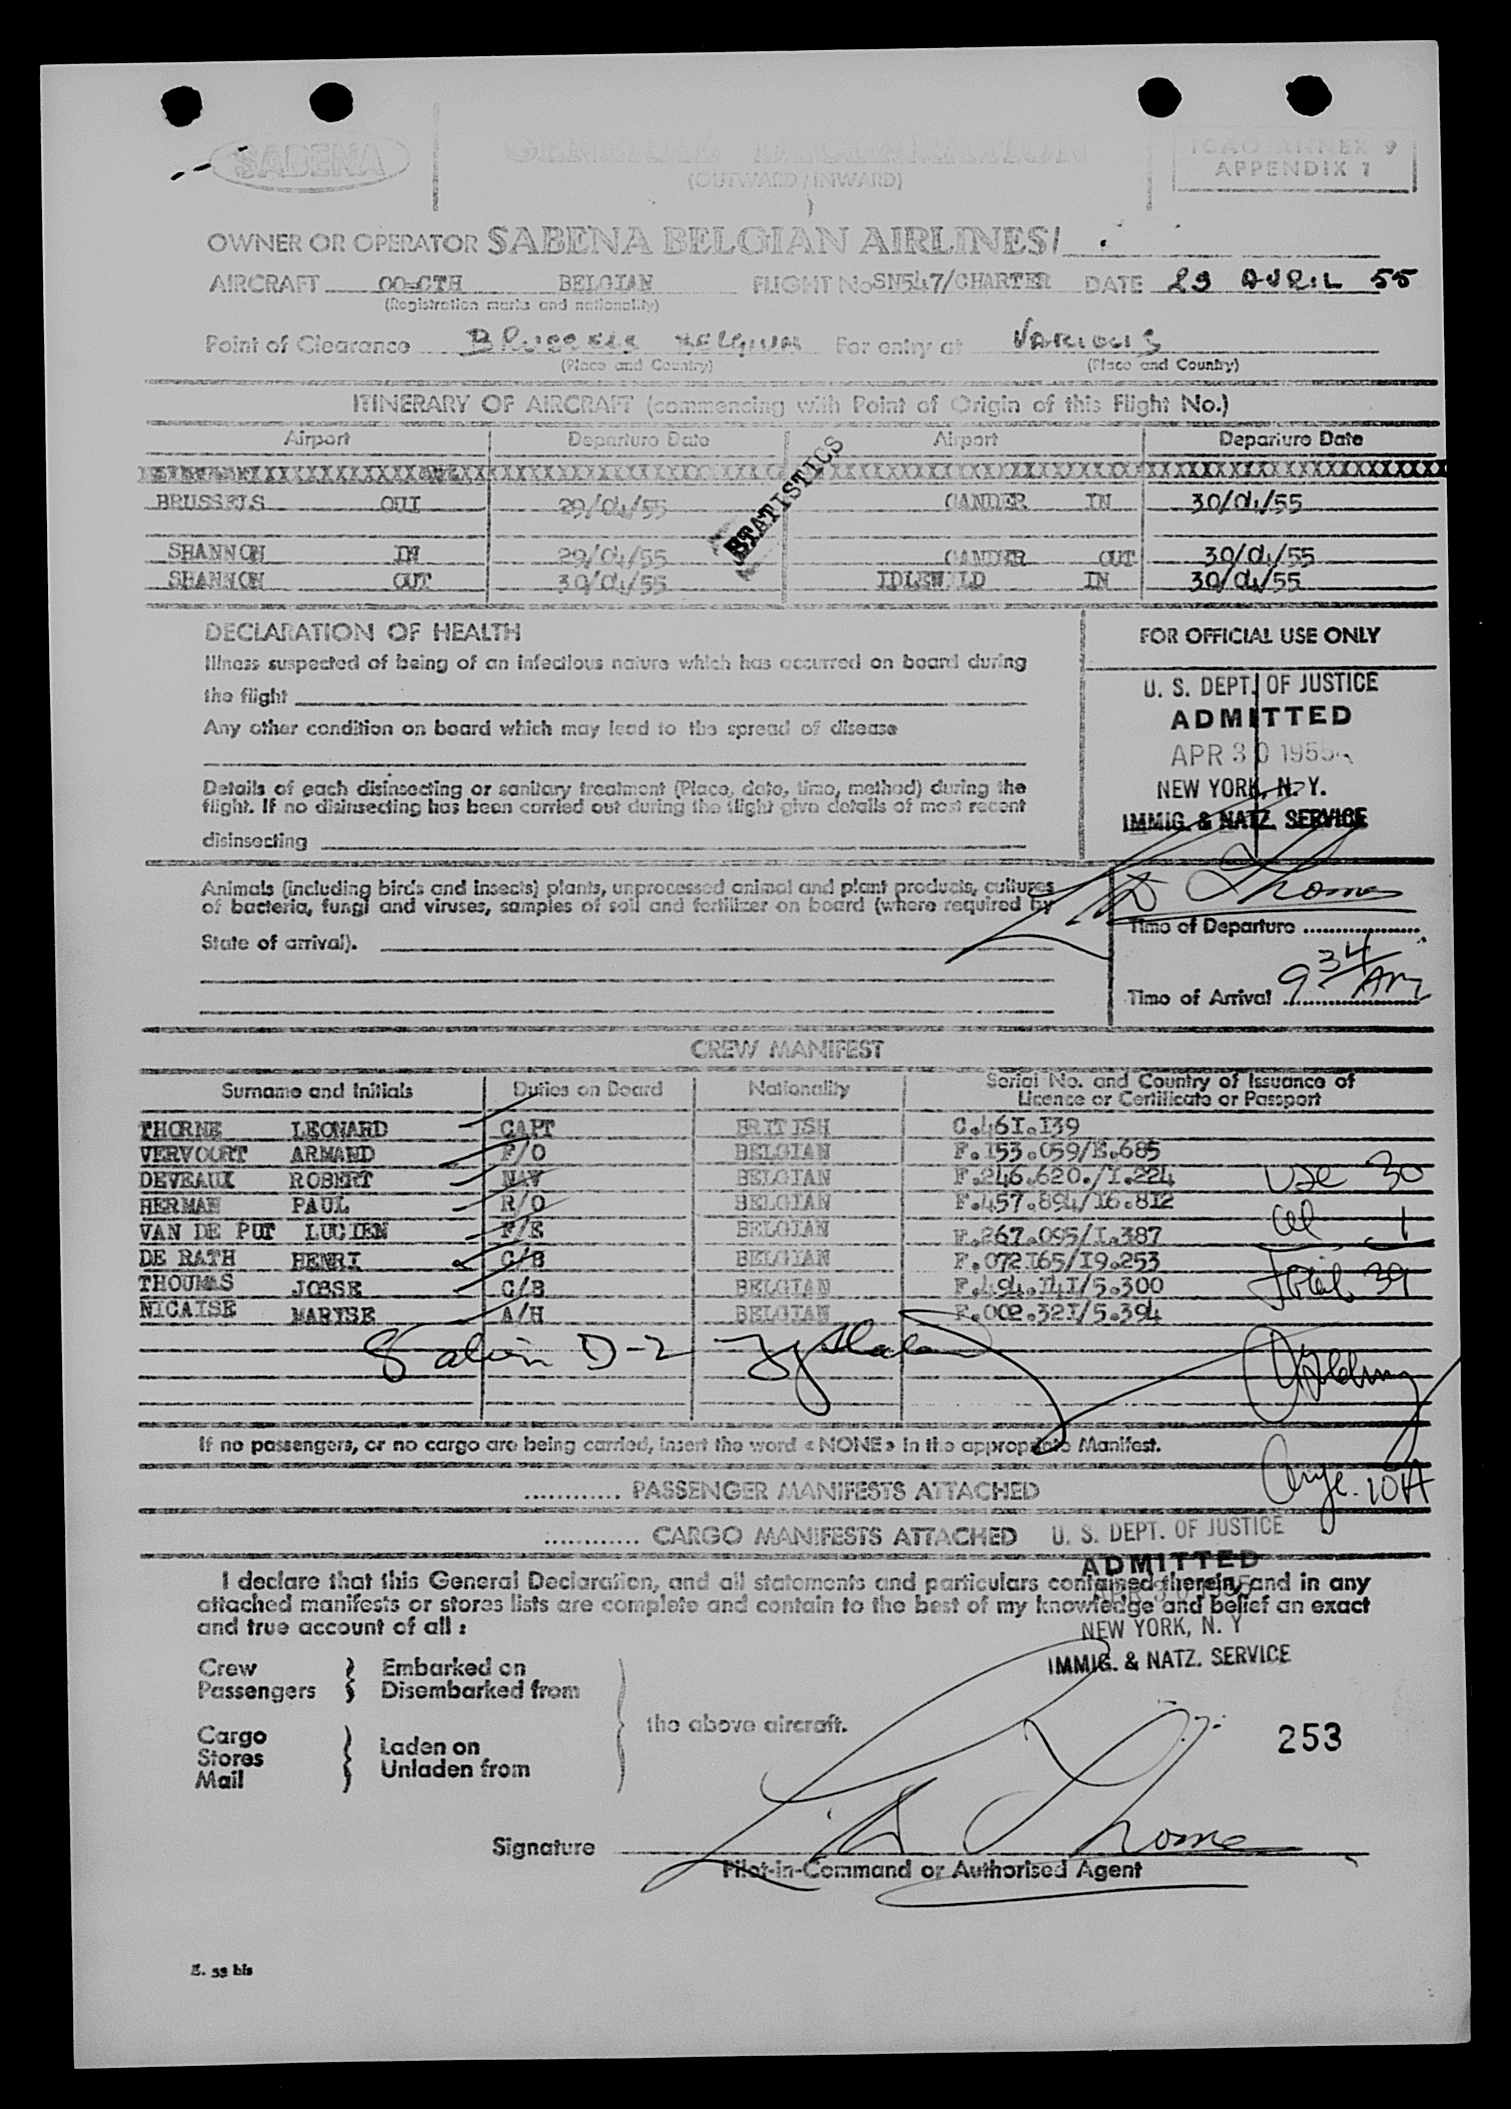 SABENA
GENERAL DECLARATION
(OUTWARD/INWARD)
ICAO ANNEX 9
APPENDIX 1
OWNER OR OPERATOR SABENA BELGIAN AIRLINES/
AIRCRAFT OO-CTH BELGIAN FLIGHT No SN547/CHARTER DATE 29 AVRIL 55
(Registration marks and nationality)
Point of Clearance BRUSSELS BELGIUM For entry at VARIOUS
(Place and Country) (Place and Country)
ITINERARY OF AIRCRAFT (commencing with Point of Origin of this Flight No.)
Airport Departure Date Airport Departure Date
BRUSSELS OUT 29/04/55 GANDER IN 30/04/55
STATISTICS
SHANNON IN 29/04/55 GANDER OUT 30/04/55
SHANNON OUT 30/04/55 IDLEWILD IN 30/04/55
DECLARATION OF HEALTH
Illness suspected of being of an infectious nature which has occurred on board during
the flight
Any other condition on board which may lead to the spread of disease
Details of each disinsecting or sanitary treatment (Place, date, time, method) during the
flight. If no disinsecting has been carried out during the flight give details of most recent
disinsecting
FOR OFFICIAL USE ONLY
U. S. DEPT. OF JUSTICE
ADMITTED
APR 30 1955
NEW YORK, N. Y.
IMMIG. & NATZ. SERVICE
Animals (including birds and insects) plants, unprocessed animal and plant products, cultures
of bacteria, fungi and viruses, samples of soil and fertilizer on board (where required by
State of arrival).
Time of Departure
Time of Arrival 9 34 AM
CREW MANIFEST
Surname and Initials Duties on Board Nationality Serial No. and Country of Issuance of
Licence or Certificate or Passport
THORNE LEONARD CAPT BRITISH C.461.139
VERVOORT ARMAND F/O BELGIAN F.153.059/E.685
DEVEAUX ROBERT NAV BELGIAN F.246.620./I.224
HERMAN PAUL R/O BELGIAN F.457.894/16.812
VAN DE PUT LUCIEN F/E BELGIAN F.267.095/I.387
DE RATH HENRI C/B BELGIAN F.072165/19.253
THOUMAS JOSSE C/B BELGIAN F.494.141/5.300
NICAISE MARYSE A/H BELGIAN F.002.321/5.394
USC 30
Total 39
D-2
If no passengers, or no cargo are being carried, insert the word « NONE » in the appropriate Manifest.
............ PASSENGER MANIFESTS ATTACHED
............ CARGO MANIFESTS ATTACHED
U. S. DEPT. OF JUSTICE
ADMITTED
NEW YORK, N. Y
IMMIG. & NATZ. SERVICE
I declare that this General Declaration, and all statements and particulars contained therein, and in any
attached manifests or stores lists are complete and contain to the best of my knowledge and belief an exact
and true account of all :
Crew Embarked on
Passengers Disembarked from
the above aircraft.
Cargo Laden on
Stores Unladen from
Mail
253
Signature
Pilot-in-Command or Authorised Agent
E. 33 bis